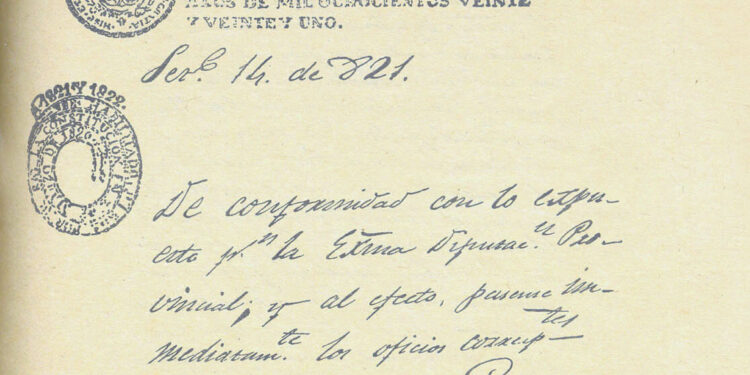 AÑOS DE MIL OCHOCIENTOS VEINTE
Y VEINTE Y UNO.
14. de 821.
1821 Y 1822.
HABILITADO
CONSTITUCION
De conformidad con lo expu-
esto p.ʳ la Exma Diputac.ⁿ Pro-
vincial; y al efecto, pasense in-
mediatam.ᵗᵉ los oficios corresp.ᵗᵉˢ